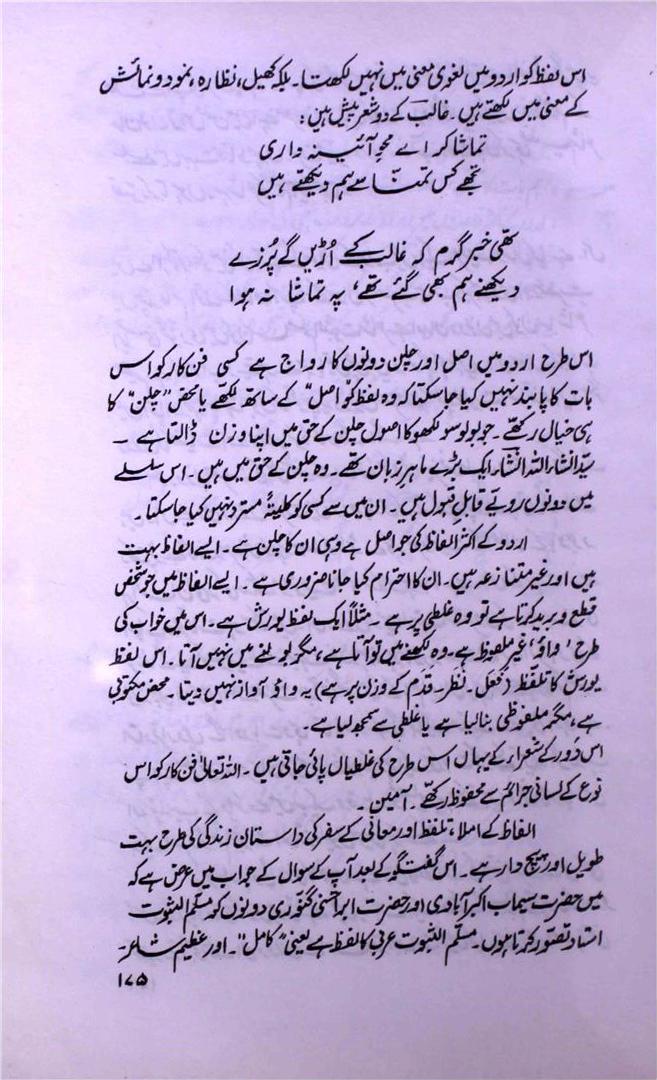 اس لفظ کو اردو میں لغوی معنی میں نہیں لکھتا۔ بلکہ کھیل، نظارہ، نمود و نمائش
کے معنی میں لکھتے ہیں۔ غالبؔ کے دو شعر پیش ہیں:
تماشا کر اے محوِ آئینہ داری
تجھے کس تمنّا سے ہم دیکھتے ہیں
تھی خبر گرم کہ غالبؔ کے اُڑیں گے پُرزے
دیکھنے ہم بھی گئے تھے، پہ تماشا نہ ہوا
اس طرح اردو میں اصل اور چلن دونوں کا رواج ہے کسی فن کار کو اس
بات کا پابند نہیں کیا جا سکتا کہ وہ لفظ کو "اصل" کے ساتھ لکھے یا محض "چلن" کا
ہی خیال رکھے۔ جو بولو سو لکھو کا اصول چلن کے حق میں اپنا وزن ڈالتا ہے۔
سیّد انشاء اللہ انشاؔء ایک بڑے ماہرِ زبان تھے۔ وہ چلن کے حق میں ہیں۔ اس سلسلے
میں دونوں رویے قابلِ قبول ہیں۔ ان میں سے کسی کو کلیتہً مسترد نہیں کیا جا سکتا۔
اردو کے اکثر الفاظ کی جو اصل ہے وہی ان کا چلن ہے۔ ایسے الفاظ بہت
ہیں اور غیر متنازعہ ہیں۔ ان کا احترام کیا جانا ضروری ہے۔ ایسے الفاظ میں جو شخص
قطع و برید کرتا ہے تو وہ غلطی پر ہے۔ مثلاً ایک لفظ یورش ہے۔ اس میں خواب کی
طرح 'واؤ' غیر ملفوظ ہے۔ وہ لکھنے میں تو آتا ہے، مگر بولنے میں نہیں آتا۔ اس لفظ
یورش کا تلفّظ (فعل۔ نظر۔ قدم کے وزن پر ہے) یہ واؤ آواز نہیں دیتا۔ محض مکتوبی
ہے، مگر ملفوظی بنا لیا ہے یا غلطی سے سمجھ لیا ہے۔
اس دَور کے شعراء کے یہاں اس طرح کی غلطیاں پائی جاتی ہیں۔ اللہ تعالیٰ فن کار کو اس
نوع کے لسانی جرائم سے محفوظ رکھے۔ آمین۔
الفاظ کے املاء، تلفظ اور معانی کے سفر کی داستان زندگی کی طرح بہت
طویل اور پیچ دار ہے۔ اس گفتگو کے بعد آپ کے سوال کے جواب میں عرض ہے کہ
میں حضرت سیماب اکبرآبادی اور حضرت ابر احسنی گنوری دونوں کو مسلّم الثبوت
استاد تصّور کرتا ہوں۔ مسلّم الثبوت عربی کا لفظ ہے یعنی "کامل"۔ اور عظیم شاعر۔
۱۷۵